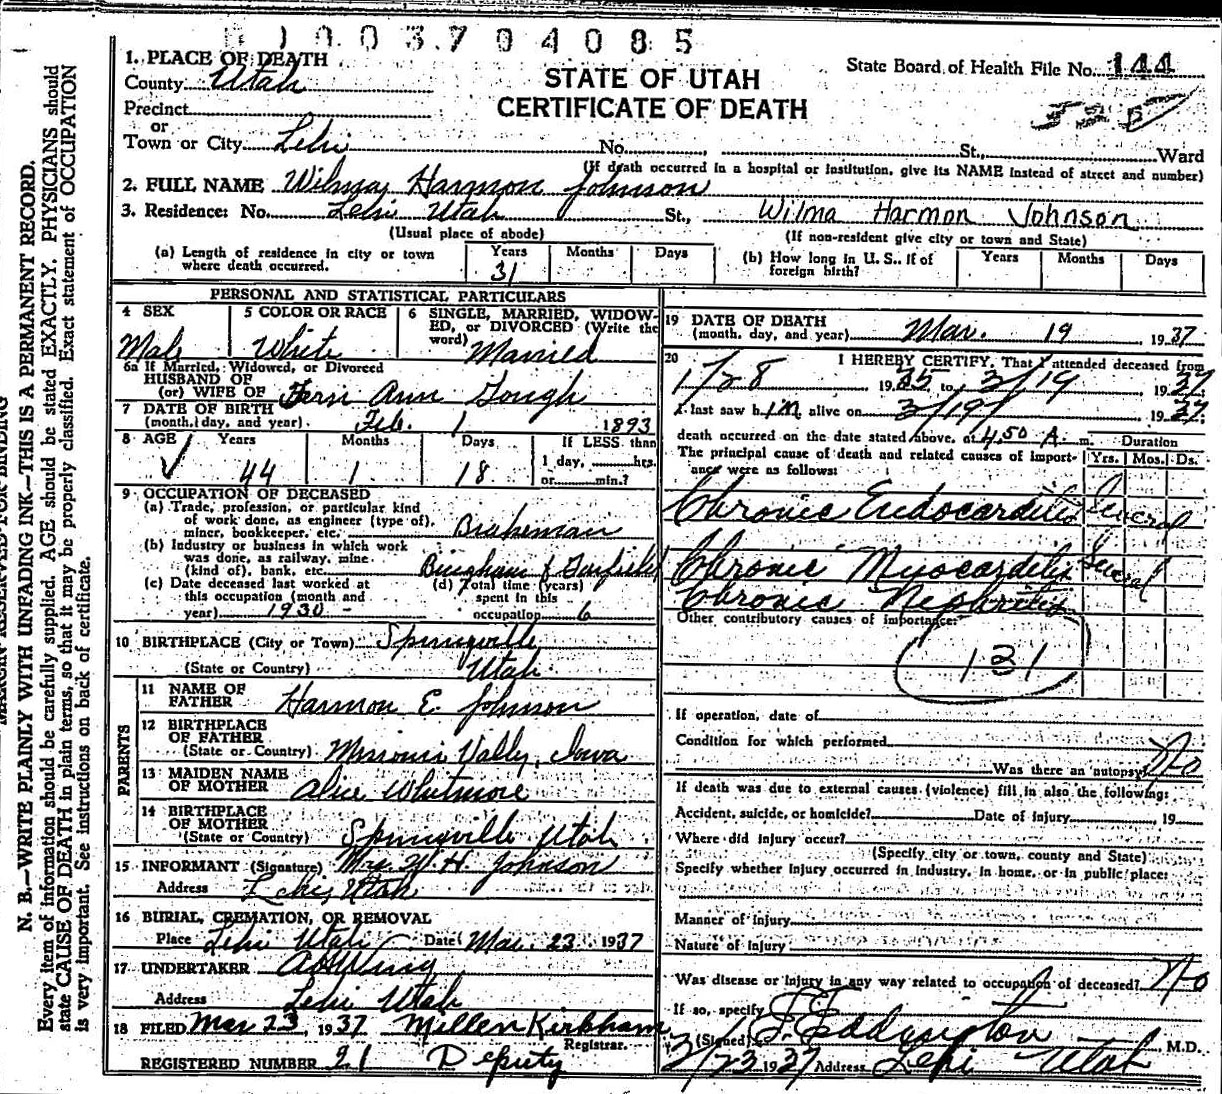 1003704085
1. PLACE OF DEATH
County Utah
Precinct
or
Town or City Lehi No. St., Ward
STATE OF UTAH
CERTIFICATE OF DEATH
State Board of Health File No. 144
(If death occurred in a hospital or institution, give its NAME instead of street and number)
2. FULL NAME Wilma Harmon Johnson
3. Residence: No. Lehi Utah St., Wilma Harmon Johnson
(Usual place of abode) (If non-resident give city or town and State)
(a) Length of residence in city or town where death occurred. Years 31 Months Days
(b) How long in U. S., if of foreign birth? Years Months Days
PERSONAL AND STATISTICAL PARTICULARS
4 SEX Male
5 COLOR OR RACE White
6 SINGLE, MARRIED, WIDOWED, or DIVORCED (Write the word) Married
6a If Married, Widowed, or Divorced
HUSBAND OF
(or) WIFE OF Fern Ann Gough
7 DATE OF BIRTH
(month, day, and year) Feb. 1 1893
8 AGE Years 44 Months 1 Days 18 If LESS than
1 day, hrs.
or min.?
9 OCCUPATION OF DECEASED
(a) Trade, profession, or particular kind
of work done, as engineer (type of),
miner, bookkeeper, etc. Brakeman
(b) Industry or business in which work
was done, as railway, mine
(kind of), bank, etc. Bingham & Garfield
(c) Date deceased last worked at
this occupation (month and
year) 1930
(d) Total time (years)
spent in this
occupation 6
10 BIRTHPLACE (City or Town) Springville
(State or Country) Utah
PARENTS
11 NAME OF
FATHER Harmon E. Johnson
12 BIRTHPLACE
OF FATHER
(State or Country) Missouri Vally, Iowa
13 MAIDEN NAME
OF MOTHER Alice Whitmore
14 BIRTHPLACE
OF MOTHER
(State or Country) Springville Utah
15 INFORMANT (Signature) Mrs. W. H. Johnson
Address Lehi, Utah
16 BURIAL, CREMATION, OR REMOVAL
Place Lehi Utah Date Mar. 23 1937
17 UNDERTAKER
Address Lehi Utah
18 FILED Mar 23, 1937 Millen Kirkham
Registrar.
REGISTERED NUMBER 21 Deputy
19 DATE OF DEATH
(month, day, and year) Mar. 19 1937
20 I HEREBY CERTIFY, That I attended deceased from
1/28 1935 to 3/19 1937
I last saw him alive on 3/19 1937
death occurred on the date stated above, at 4:50 A. m. Duration
The principal cause of death and related causes of importance were as follows: Yrs. Mos. Ds.
Chronic Endocarditis Several
Chronic Myocarditis Several
Chronic Nephritis
Other contributory causes of importance:
131
If operation, date of
Condition for which performed
Was there an autopsy? No
If death was due to external causes (violence) fill in also the following:
Accident, suicide, or homicide? Date of injury , 19
Where did injury occur?
(Specify city or town, county and State)
Specify whether injury occurred in industry, in home, or in public place:
Manner of injury
Nature of injury
Was disease or injury in any way related to occupation of deceased? No
If so, specify
(Signed) Eddington M.D.
3/23 1937 Address Lehi Utah
MARGIN RESERVED FOR BINDING
N. B.—WRITE PLAINLY WITH UNFADING INK—THIS IS A PERMANENT RECORD.
Every item of information should be carefully supplied. AGE should be stated EXACTLY. PHYSICIANS should
state CAUSE OF DEATH in plain terms, so that it may be properly classified. Exact statement of OCCUPATION
is very important. See instructions on back of certificate.